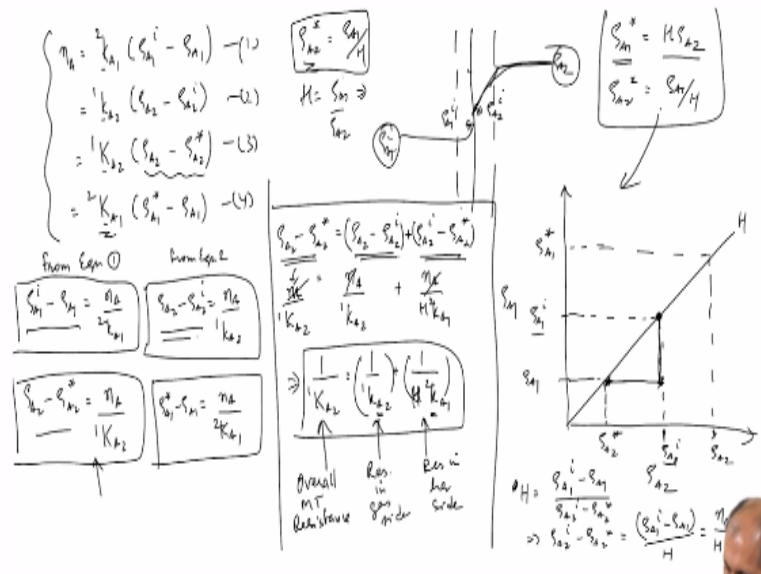 n_A = ²k_A1 (ρ_A1^i − ρ_A1) —(1)
= ¹k_A2 (ρ_A2 − ρ_A2^i) —(2)
= ¹K_A2 (ρ_A2 − ρ_A2^*) —(3)
= ²K_A1 (ρ_A1^* − ρ_A1) —(4)
from Eqn ①
from Eqn 2
ρ_A1^i − ρ_A1 = n_A / ²k_A1
ρ_A2 − ρ_A2^i = n_A / ¹k_A2
ρ_A2 − ρ_A2^* = n_A / ¹K_A2
ρ_A1^* − ρ_A1 = n_A / ²K_A1
ρ_A2^* = ρ_A1/H
H = ρ_A1 / ρ_A2 ⇒
ρ_A1^i
ρ_A2^i
ρ_A2
ρ_A2 − ρ_A2^* = (ρ_A2 − ρ_A2^i) + (ρ_A2^i − ρ_A2^*)
n_A / ¹K_A2 = n_A / ¹k_A2 + n_A / H²k_A1
⇒ 1 / ¹K_A2 = (1 / ¹k_A2) + (1 / H ²k_A1)
Overall
MT
Resistance
Res.
in
gas
side
Res in
side
ρ_A1^* = Hρ_A2
ρ_A2^* = ρ_A1/H
H
ρ_A1^*
ρ_A1
ρ_A1^i
ρ_A1
ρ_A2^*
ρ_A2^i
ρ_A2
ρ_A2
H = ρ_A1^i − ρ_A1 / ρ_A2^i − ρ_A2^*
⇒ ρ_A2^i − ρ_A2^* = (ρ_A1^i − ρ_A1) / H = n / H